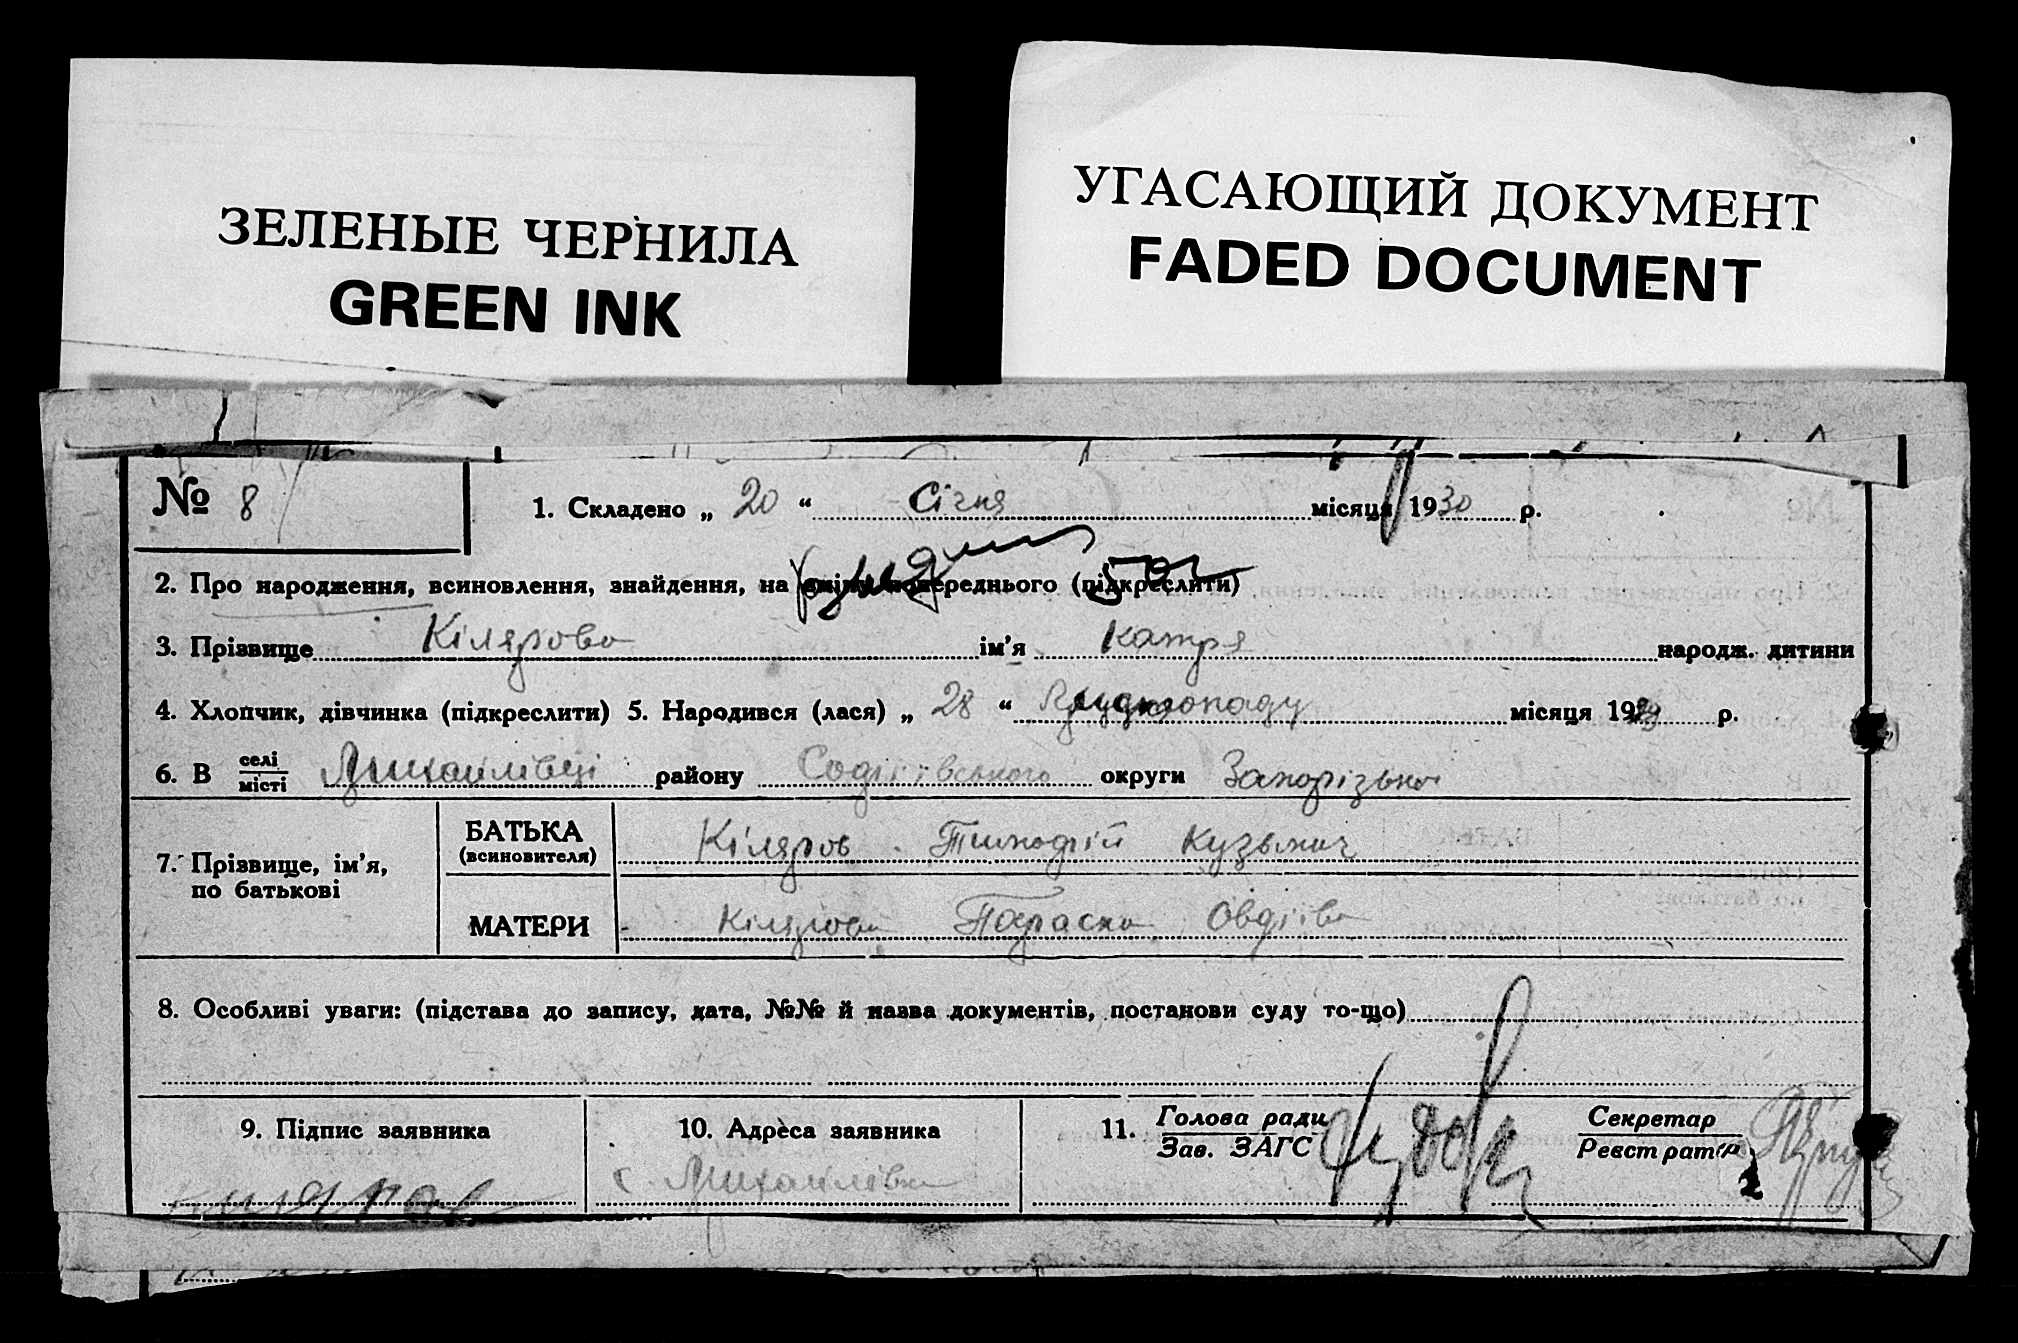 ЗЕЛЕНЫЕ ЧЕРНИЛА
GREEN INK
УГАСАЮЩИЙ ДОКУМЕНТ
FADED DOCUMENT
№ 8
1. Складено „ 20 “ Січня місяця 1930 р.
2. Про народження, всиновлення, знайдення, на зміну попереднього (підкреслити)
3. Прізвище Кілярова ім'я Катря народж. дитини
4. Хлопчик, дівчинка (підкреслити) 5. Народився (лася) „ 28 “ місяця 1929 р.
6. В селі місті Михайлівці району округи Запорізької
7. Прізвище, ім'я, по батькові
БАТЬКА (всиновителя) Кіляров Тимофій Кузьмич
МАТЕРИ Кілярова Параска Овдіїва
8. Особливі уваги: (підстава до запису, дата, №№ й назва документів, постанови суду то-що)
9. Підпис заявника
10. Адреса заявника
с. Михайлівка
11. Голова ради Зав. ЗАГС
Секретар Реєстратор